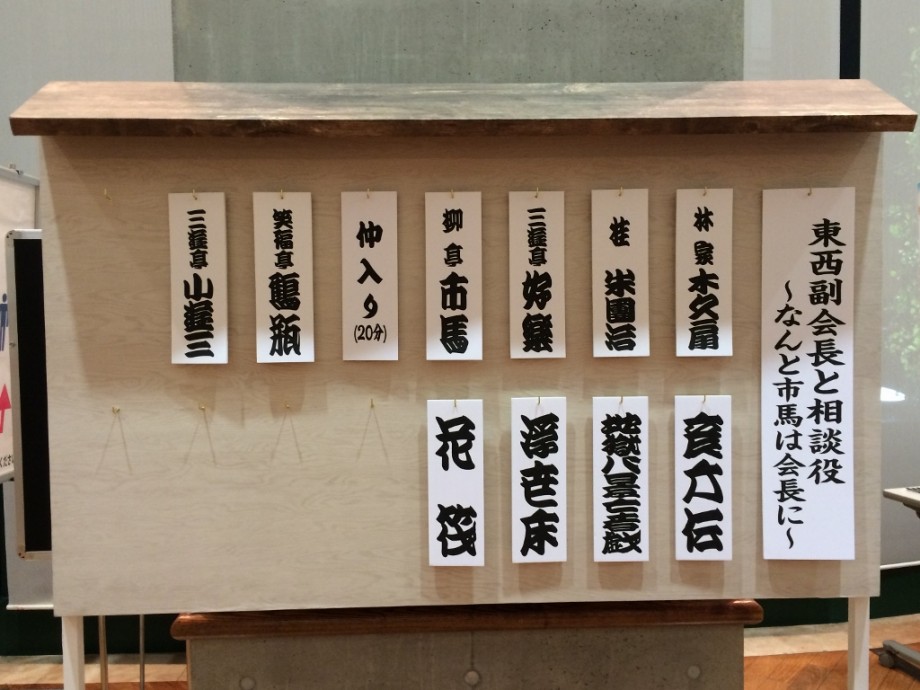 東西副会長と相談役
～なんと市馬は会長に～
林家 木久扇
彦六伝
桂 米團治
地獄八景亡者戯
三遊亭 好樂
浮世床
柳亭 市馬
花筏
仲入り
(20分)
笑福亭 鶴瓶
三遊亭 小遊三